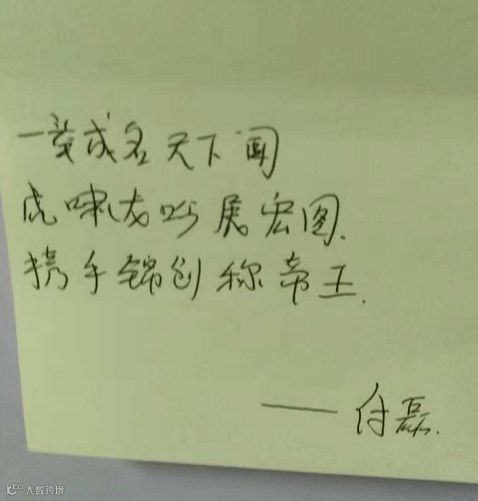 一举成名天下闻
虎啸龙吟展宏图.
携手锦创称帝王.
——付磊.
大数跨境